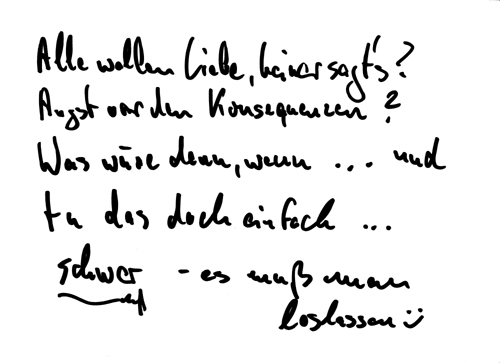 Alle wollen Liebe, keiner sagt's?
Angst vor den Konsequenzen?
Was wäre denn, wenn ... und
tu das doch einfach ...
schwer - es muß man
loslassen